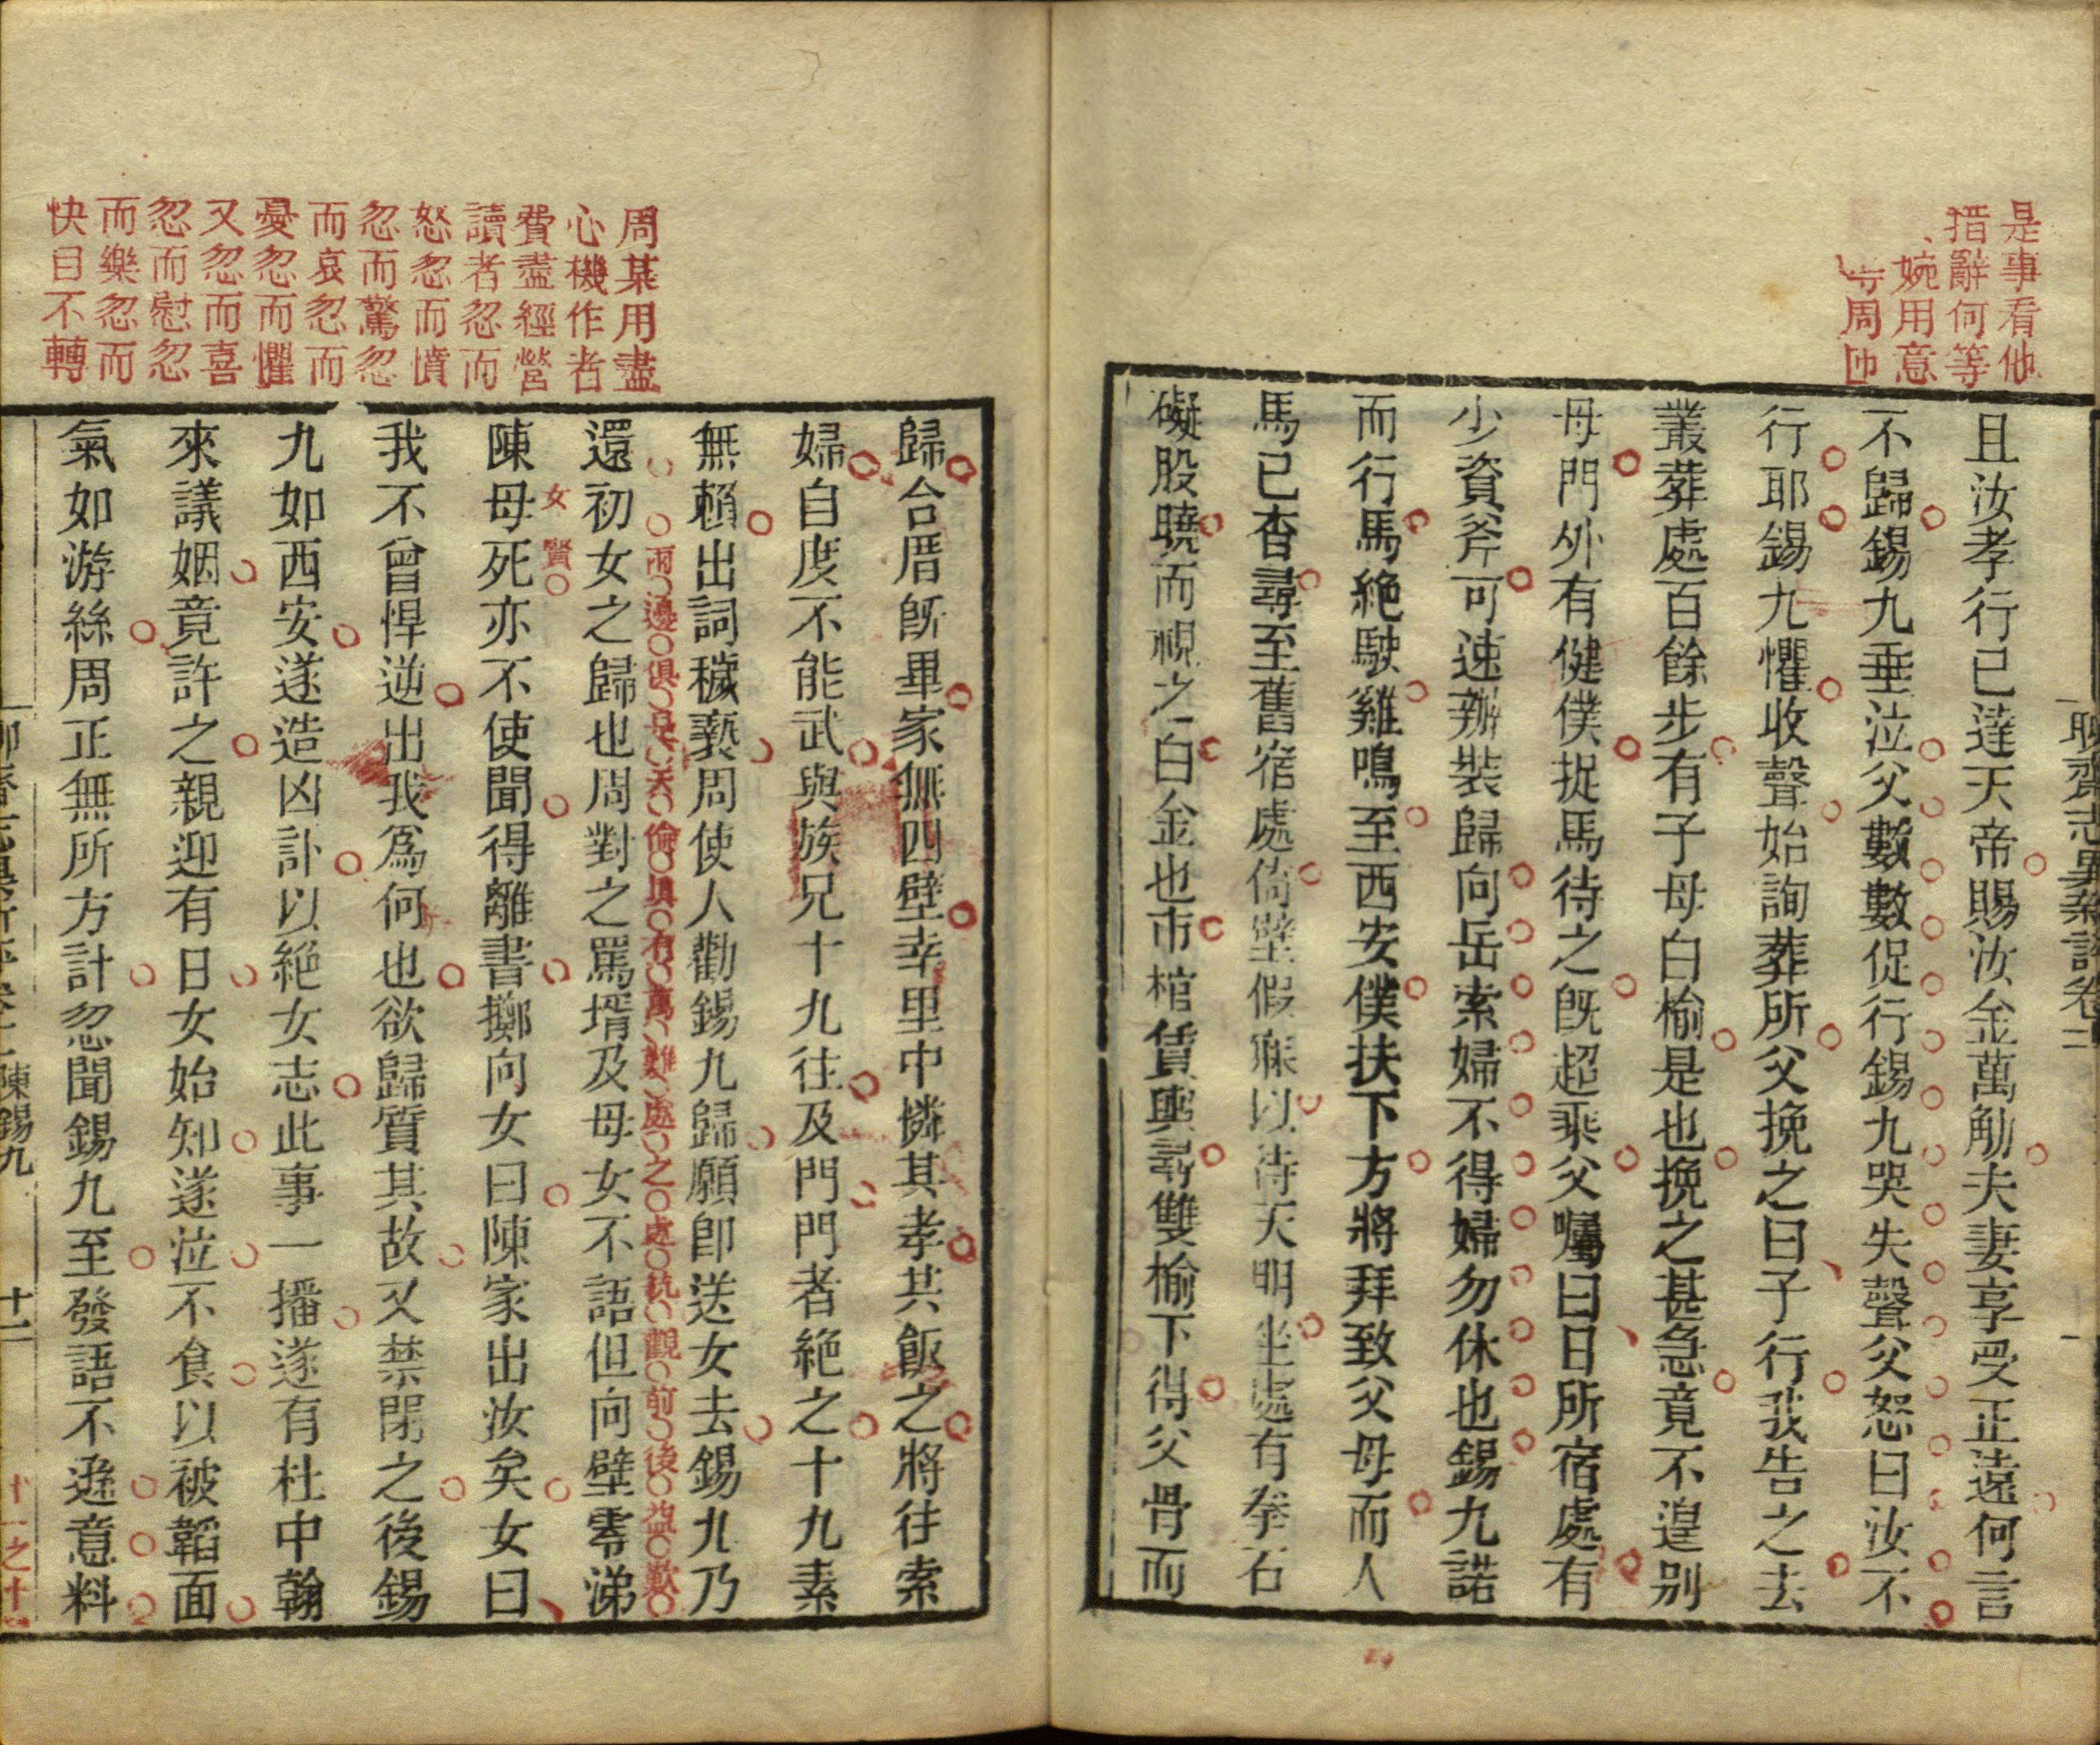 是事看他
措辭何等
婉用意
周匝
聊齋志異新評卷十二
且汝孝行已達天帝賜汝金萬觔夫妻享受正遠何言
不歸錫九垂泣父數數促行錫九哭失聲父怒曰汝不
行耶錫九懼收聲始詢葬所父挽之曰子行我告之去
叢葬處百餘步有子母白榆是也挽之甚急竟不遑别
母門外有健僕捉馬待之旣超乘父囑曰日所宿處有
少資斧可速辦裝歸向岳索婦不得婦勿休也錫九諾
而行馬絶駛雞鳴至西安僕扶下方將拜致父母而人
馬已杳尋至舊宿處倚壁假寐以待天明坐處有拳石
礙股曉而視之白金也市棺賃輿尋雙榆下得父骨而
周某用盡
心機作者
費盡經營
讀者忽而
怒忽而憤
忽而驚忽
而哀忽而
憂忽而懼
又忽而喜
忽而慰忽
而樂忽而
快目不轉
歸合厝旣畢家無四壁幸里中憐其孝共飯之將往索
婦自度不能武與族兄十九往及門門者絶之十九素
無賴出詞穢褻周使人勸錫九歸願卽送女去錫九乃
兩邊俱是天倫眞有萬難處之處統觀前後益歎
還初女之歸也周對之罵壻及母女不語但向壁零涕
女賢
陳母死亦不使聞得離書擲向女曰陳家出汝矣女曰
我不曾悍逆出我爲何也欲歸質其故又禁閉之後錫
九如西安遂造凶訃以絶女志此事一播遂有杜中翰
來議姻竟許之親迎有日女始知遂泣不食以被韜面
氣如游絲周正無所方計忽聞錫九至發語不遜意料
陳錫九
十二